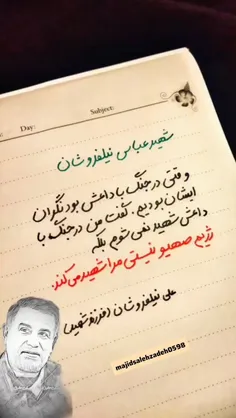 Day:
Subject:
شهید عباس نیلفروشان
وقتی در جنگ با داعش بود نگران
ایشان بودیم. گفت من در جنگ با
داعش شهید نمی شوم بلکه
رژیم صهیونیستی مرا شهید می کند.
علی نیلفروشان (فرزند شهید)
majidsalehzadeh0598